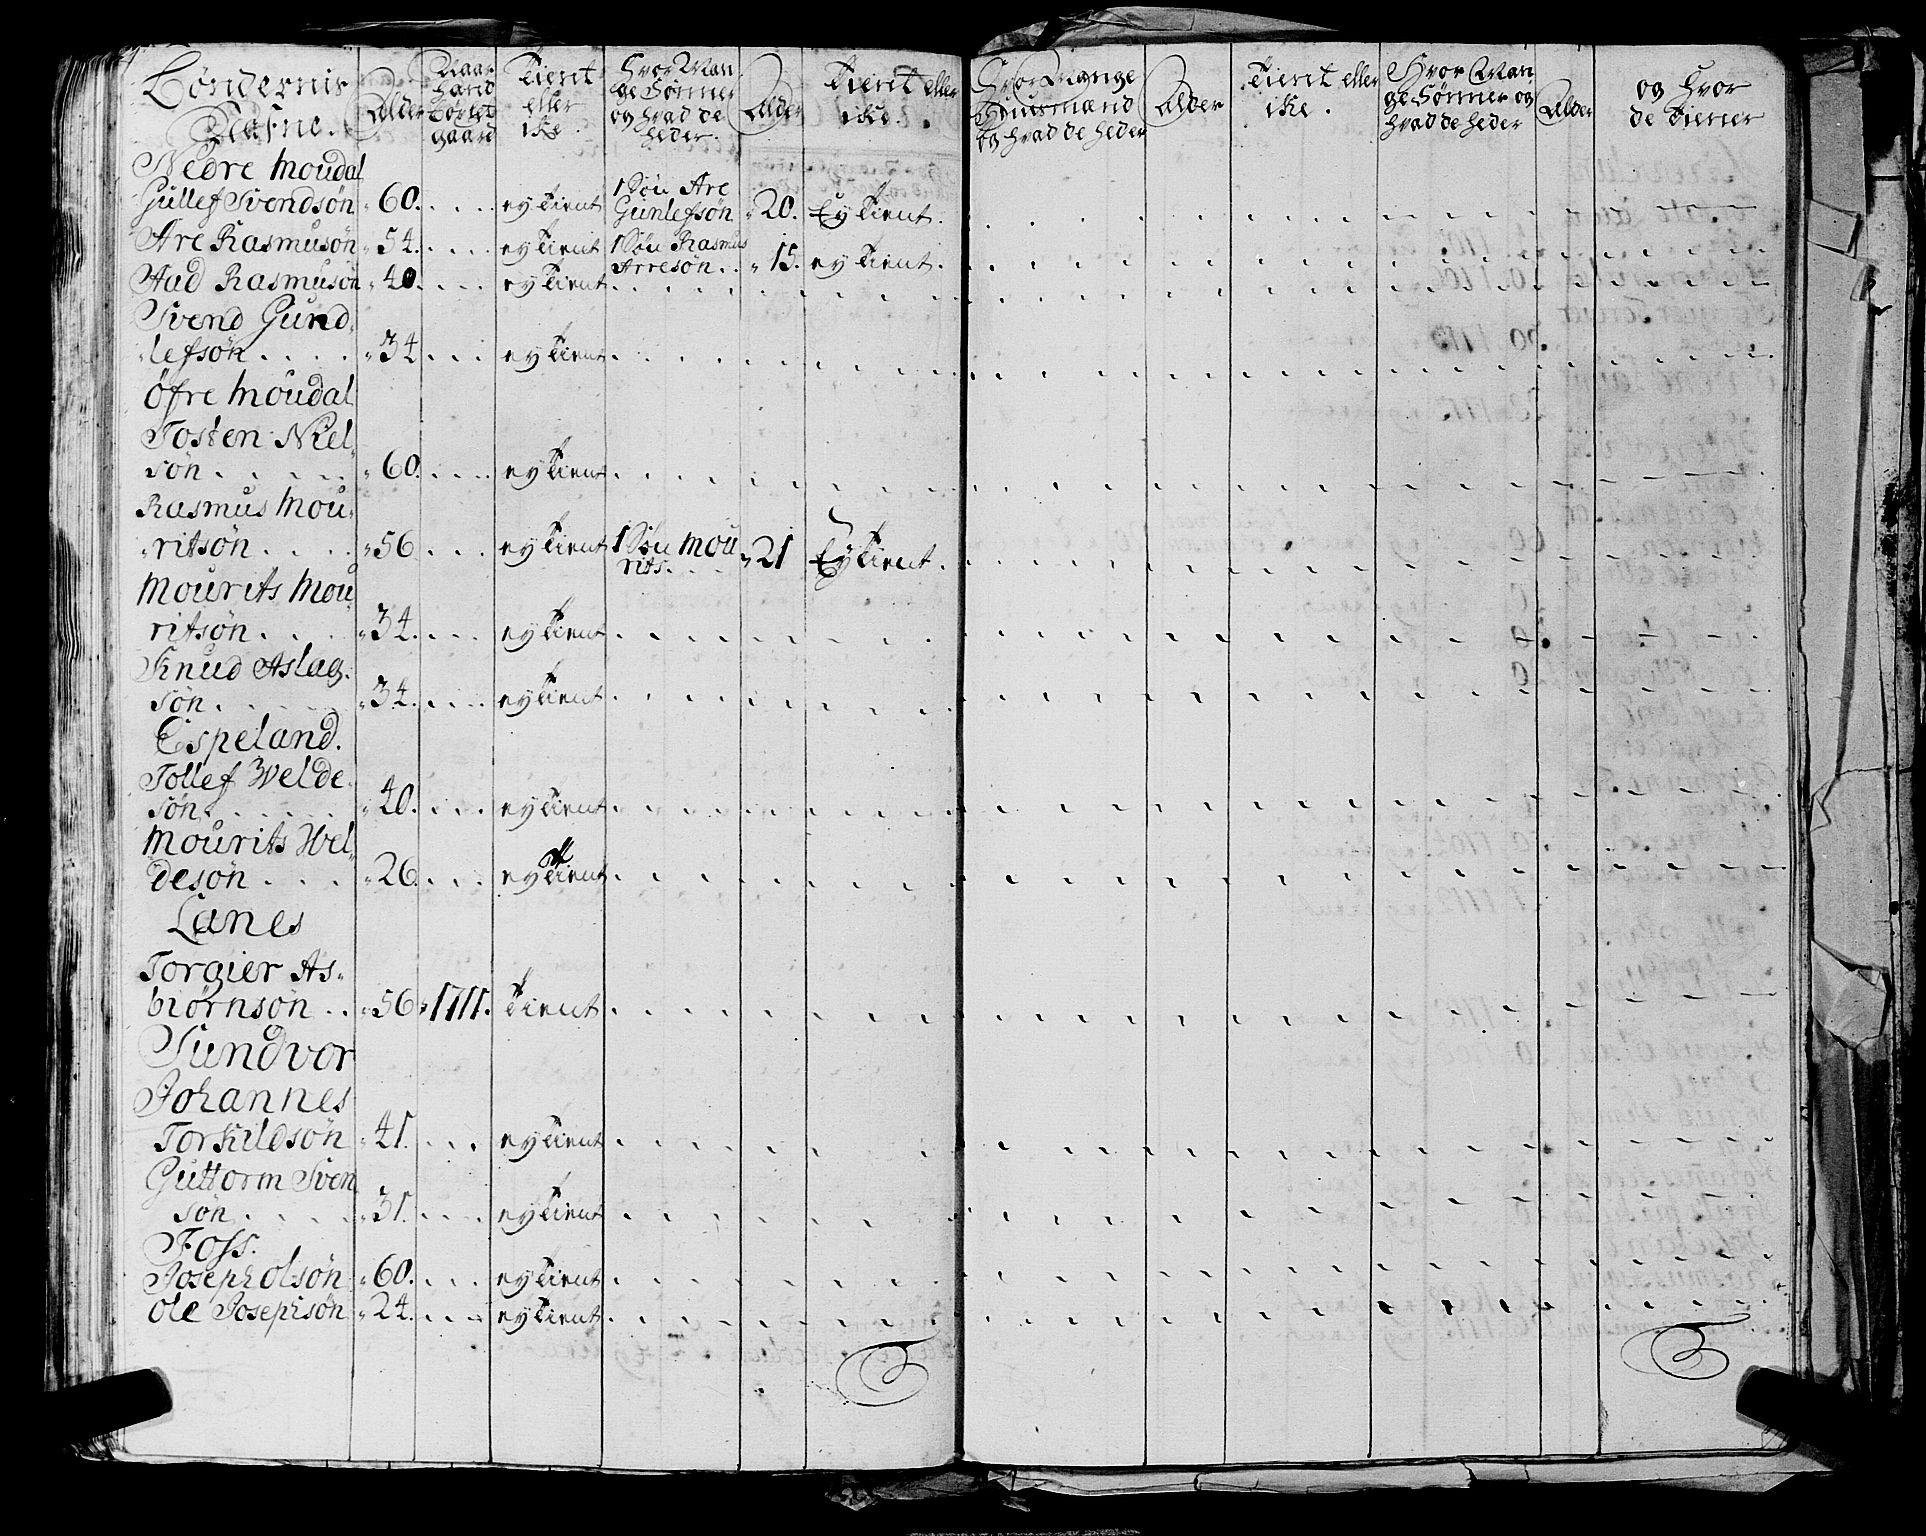 Bøndernis Nafne. | Alder | Naar hand Forlet gaard | Tient eller ike. | Hvor Man ge Sønner og hvad de heder. | Alder | Tient eller ike. | Hvor Mange Huusmænd og hvad de heder | Alder | Tient eller ike. | Hvor Man ge Sønner og hvad de heder | Alder | og hvor de tiener
Nedre Moudal
Gullef Svendsøn | 60. | ey tient | 1 Søn Are Gunlefsøn | 20. | Ey tient.
Are Rasmusøn | 54. | ey tient | 1 Søn Rasmus Arresøn | 15. | ey tient.
Aad Rasmusøn | 40. | ey tient
Svend Gund
lefsøn | 34 | ey tient
Øfre Moudal
Tosten Niel
søn | 60. | ey tient
Rasmus Mou
ritsøn | 56 | ey tient | 1 Søn Mou rits. | 21 | Ey tient.
Mourits Mou
ritsøn | 34. | ey tient
Knud Aslag
søn | 34. | ey tient
Espeland.
Tollef Welde
søn | 40. | ey tient
Mourits Wel
desøn | 26 | ey tient
Lanes
Torgier As
biørnsøn | 56 | 1711. | tient
Sundvor
Johannes
Torkildsøn | 41. | ey tient
Guttorm Sven
søn | 31. | ey tient
Foss.
Joseph Olsøn | 60. | ey tient
Ole Josephsøn | 24. | ey tient